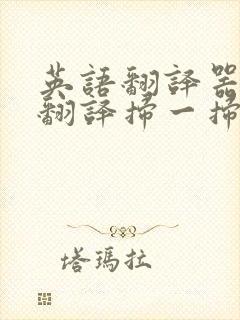 英語翻譯器
翻譯掃一掃
塔瑪拉